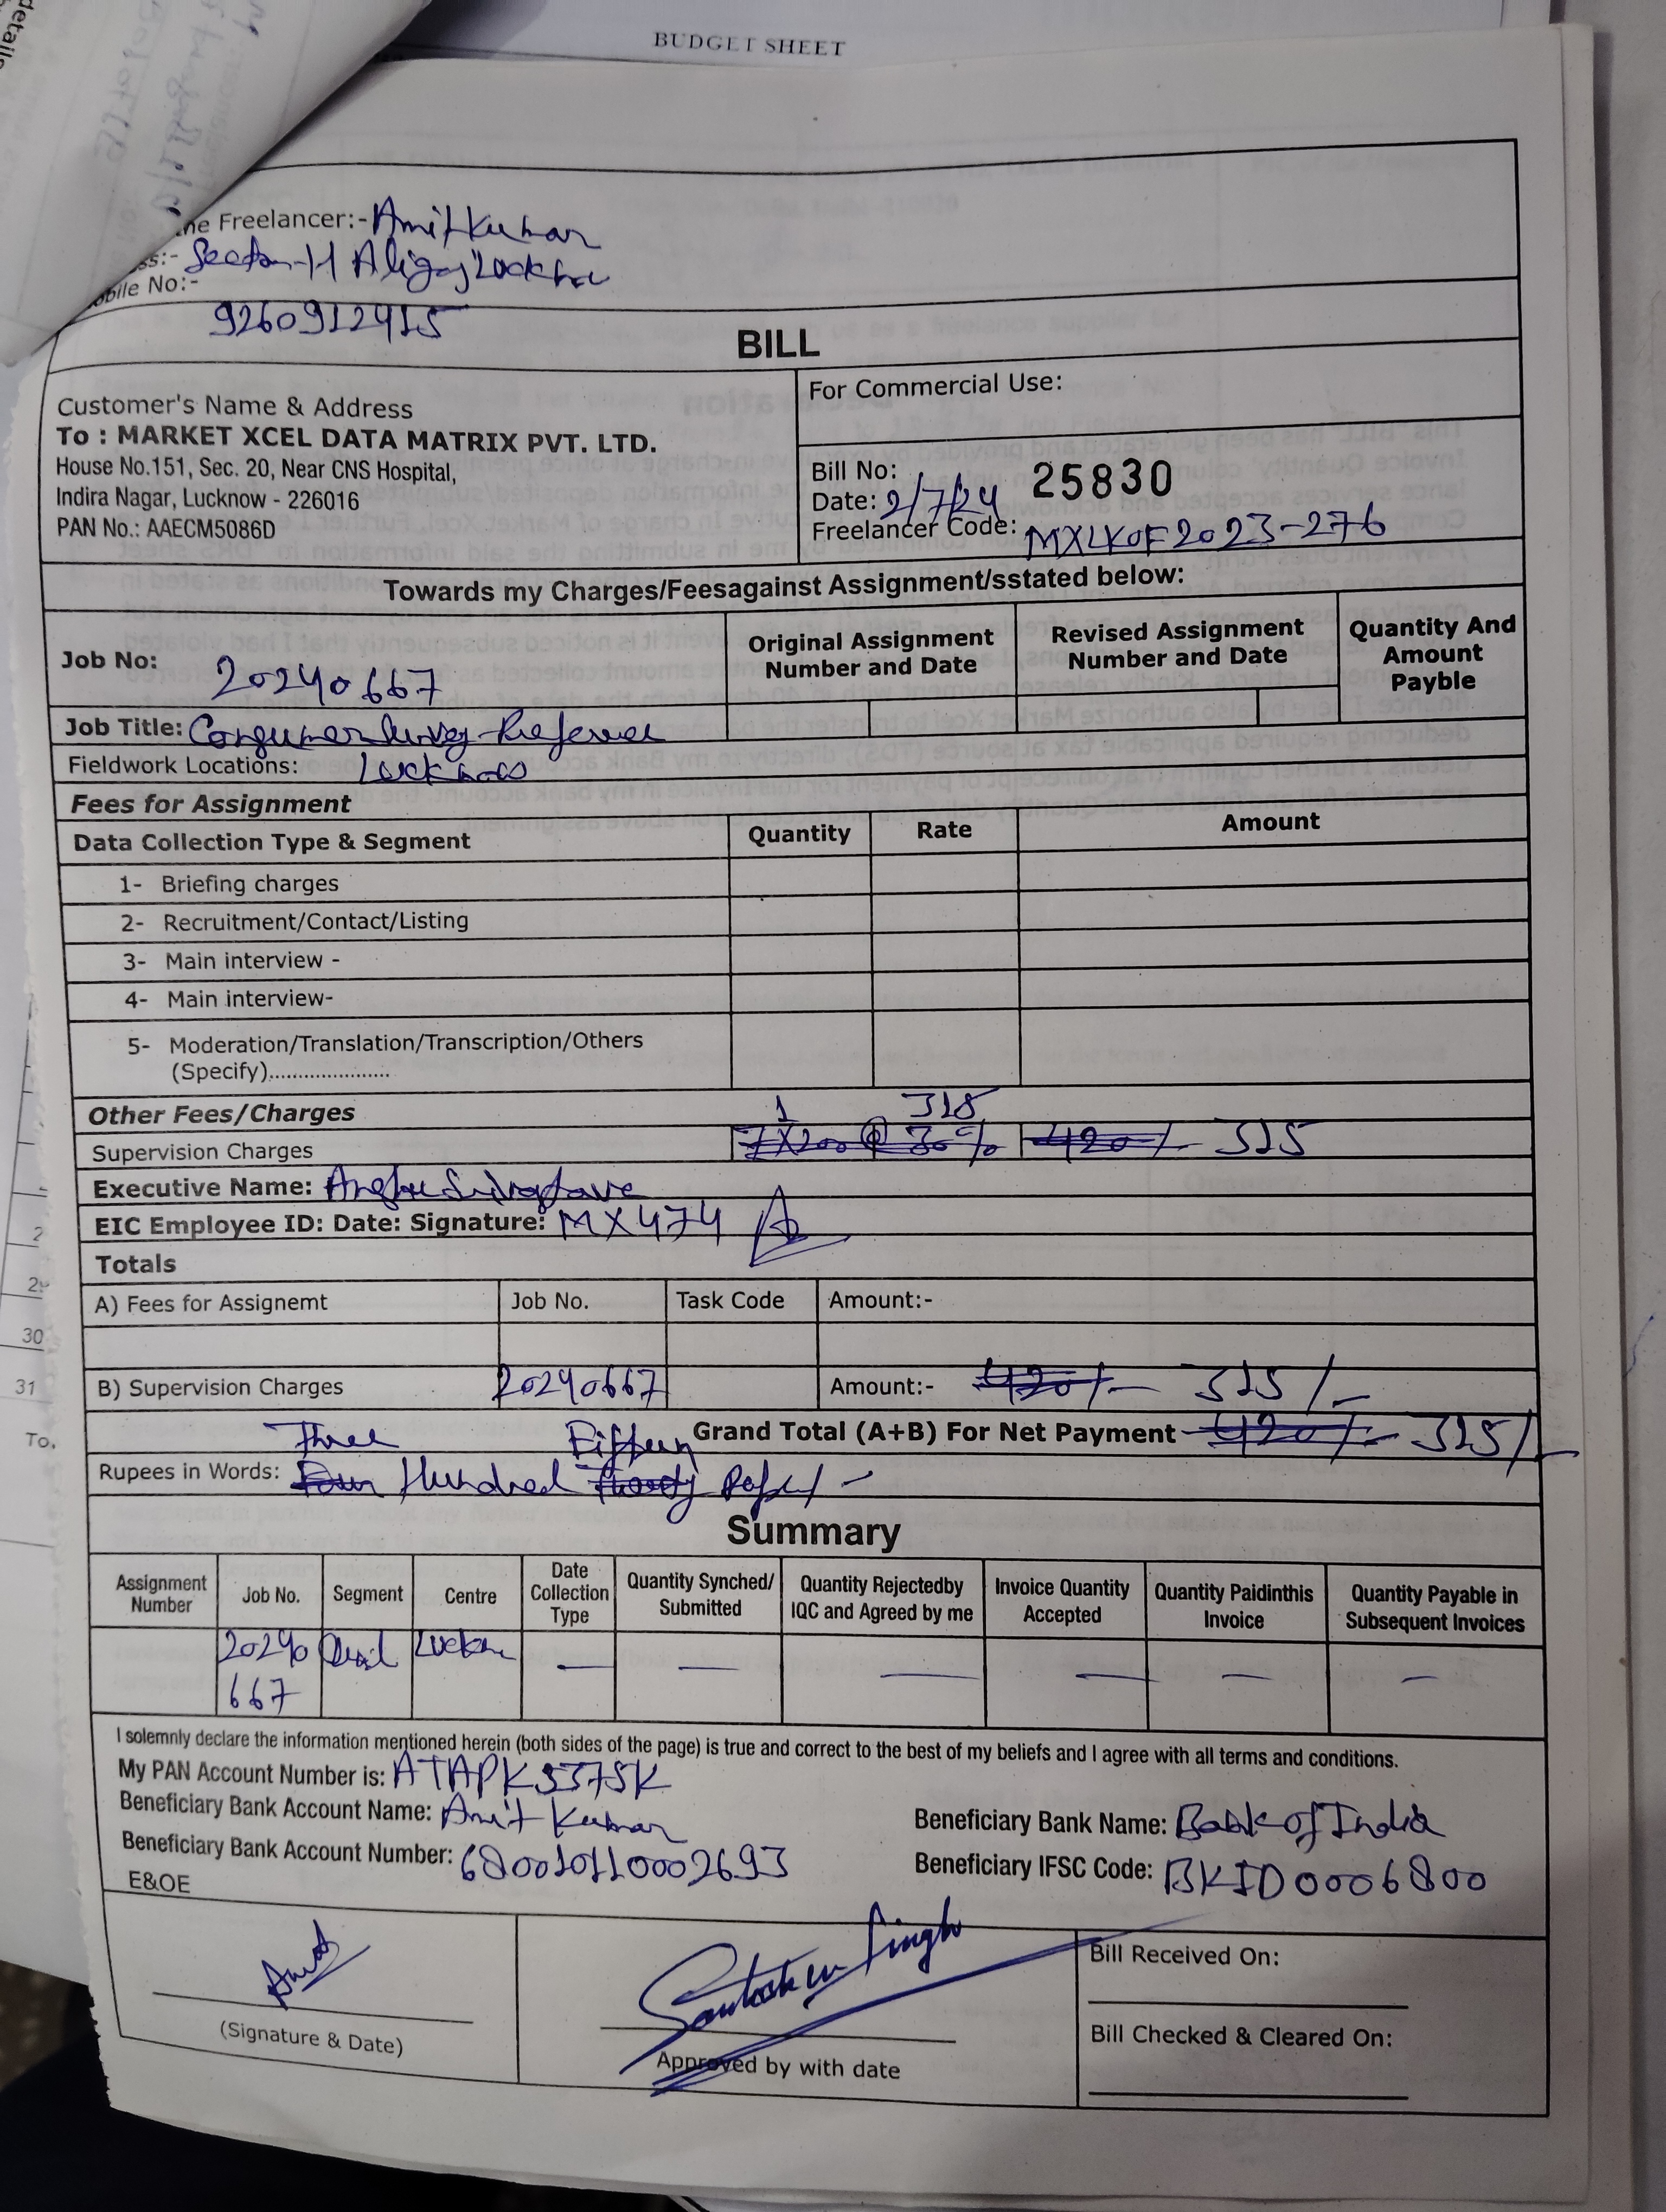 details
BUDGET SHEET
he Freelancer:- Amit Kumar
ss:- Sector-H Aliganj Lucknow
obile No:-
9260912415
BILL
Customer's Name & Address
To : MARKET XCEL DATA MATRIX PVT. LTD.
House No.151, Sec. 20, Near CNS Hospital,
Indira Nagar, Lucknow - 226016
PAN No.: AAECM5086D
For Commercial Use:
Bill No: 25830
Date: 2/7/24
Freelancer Code: MXLKOF2023-276
Towards my Charges/Feesagainst Assignment/sstated below:
Job No: 20240667
Original Assignment Number and Date
Revised Assignment Number and Date
Quantity And Amount Payble
Job Title: Consumer Survey-Referral
Fieldwork Locations: Lucknow
Fees for Assignment
Data Collection Type & Segment Quantity Rate Amount
1- Briefing charges
2- Recruitment/Contact/Listing
3- Main interview -
4- Main interview-
5- Moderation/Translation/Transcription/Others
(Specify).....................
Other Fees/Charges 1 315
Supervision Charges 7X200 @ 30% 420/- 315
Executive Name:
EIC Employee ID: Date: Signature: MX474
Totals
A) Fees for Assignemt Job No. Task Code Amount:-
B) Supervision Charges 20240667 Amount:- 420/- 315/-
Grand Total (A+B) For Net Payment 420/- 315/-
Three Fifteen
Rupees in Words: Four Hundred
Summary
Assignment Number Job No. Segment Centre Date Collection Type Quantity Synched/ Submitted Quantity Rejectedby IQC and Agreed by me Invoice Quantity Accepted Quantity Paidinthis Invoice Quantity Payable in Subsequent Invoices
20240 Lucknow — — — — — —
667
I solemnly declare the information mentioned herein (both sides of the page) is true and correct to the best of my beliefs and I agree with all terms and conditions.
My PAN Account Number is: ATAPK5375K
Beneficiary Bank Account Name: Amit Kumar
Beneficiary Bank Name: Bank of India
Beneficiary Bank Account Number: 680010110002693
Beneficiary IFSC Code: BKID0006800
E&OE
Amit
(Signature & Date)
Santosh Kr Singh
Approved by with date
Bill Received On:
Bill Checked & Cleared On:
2
30
31
To,